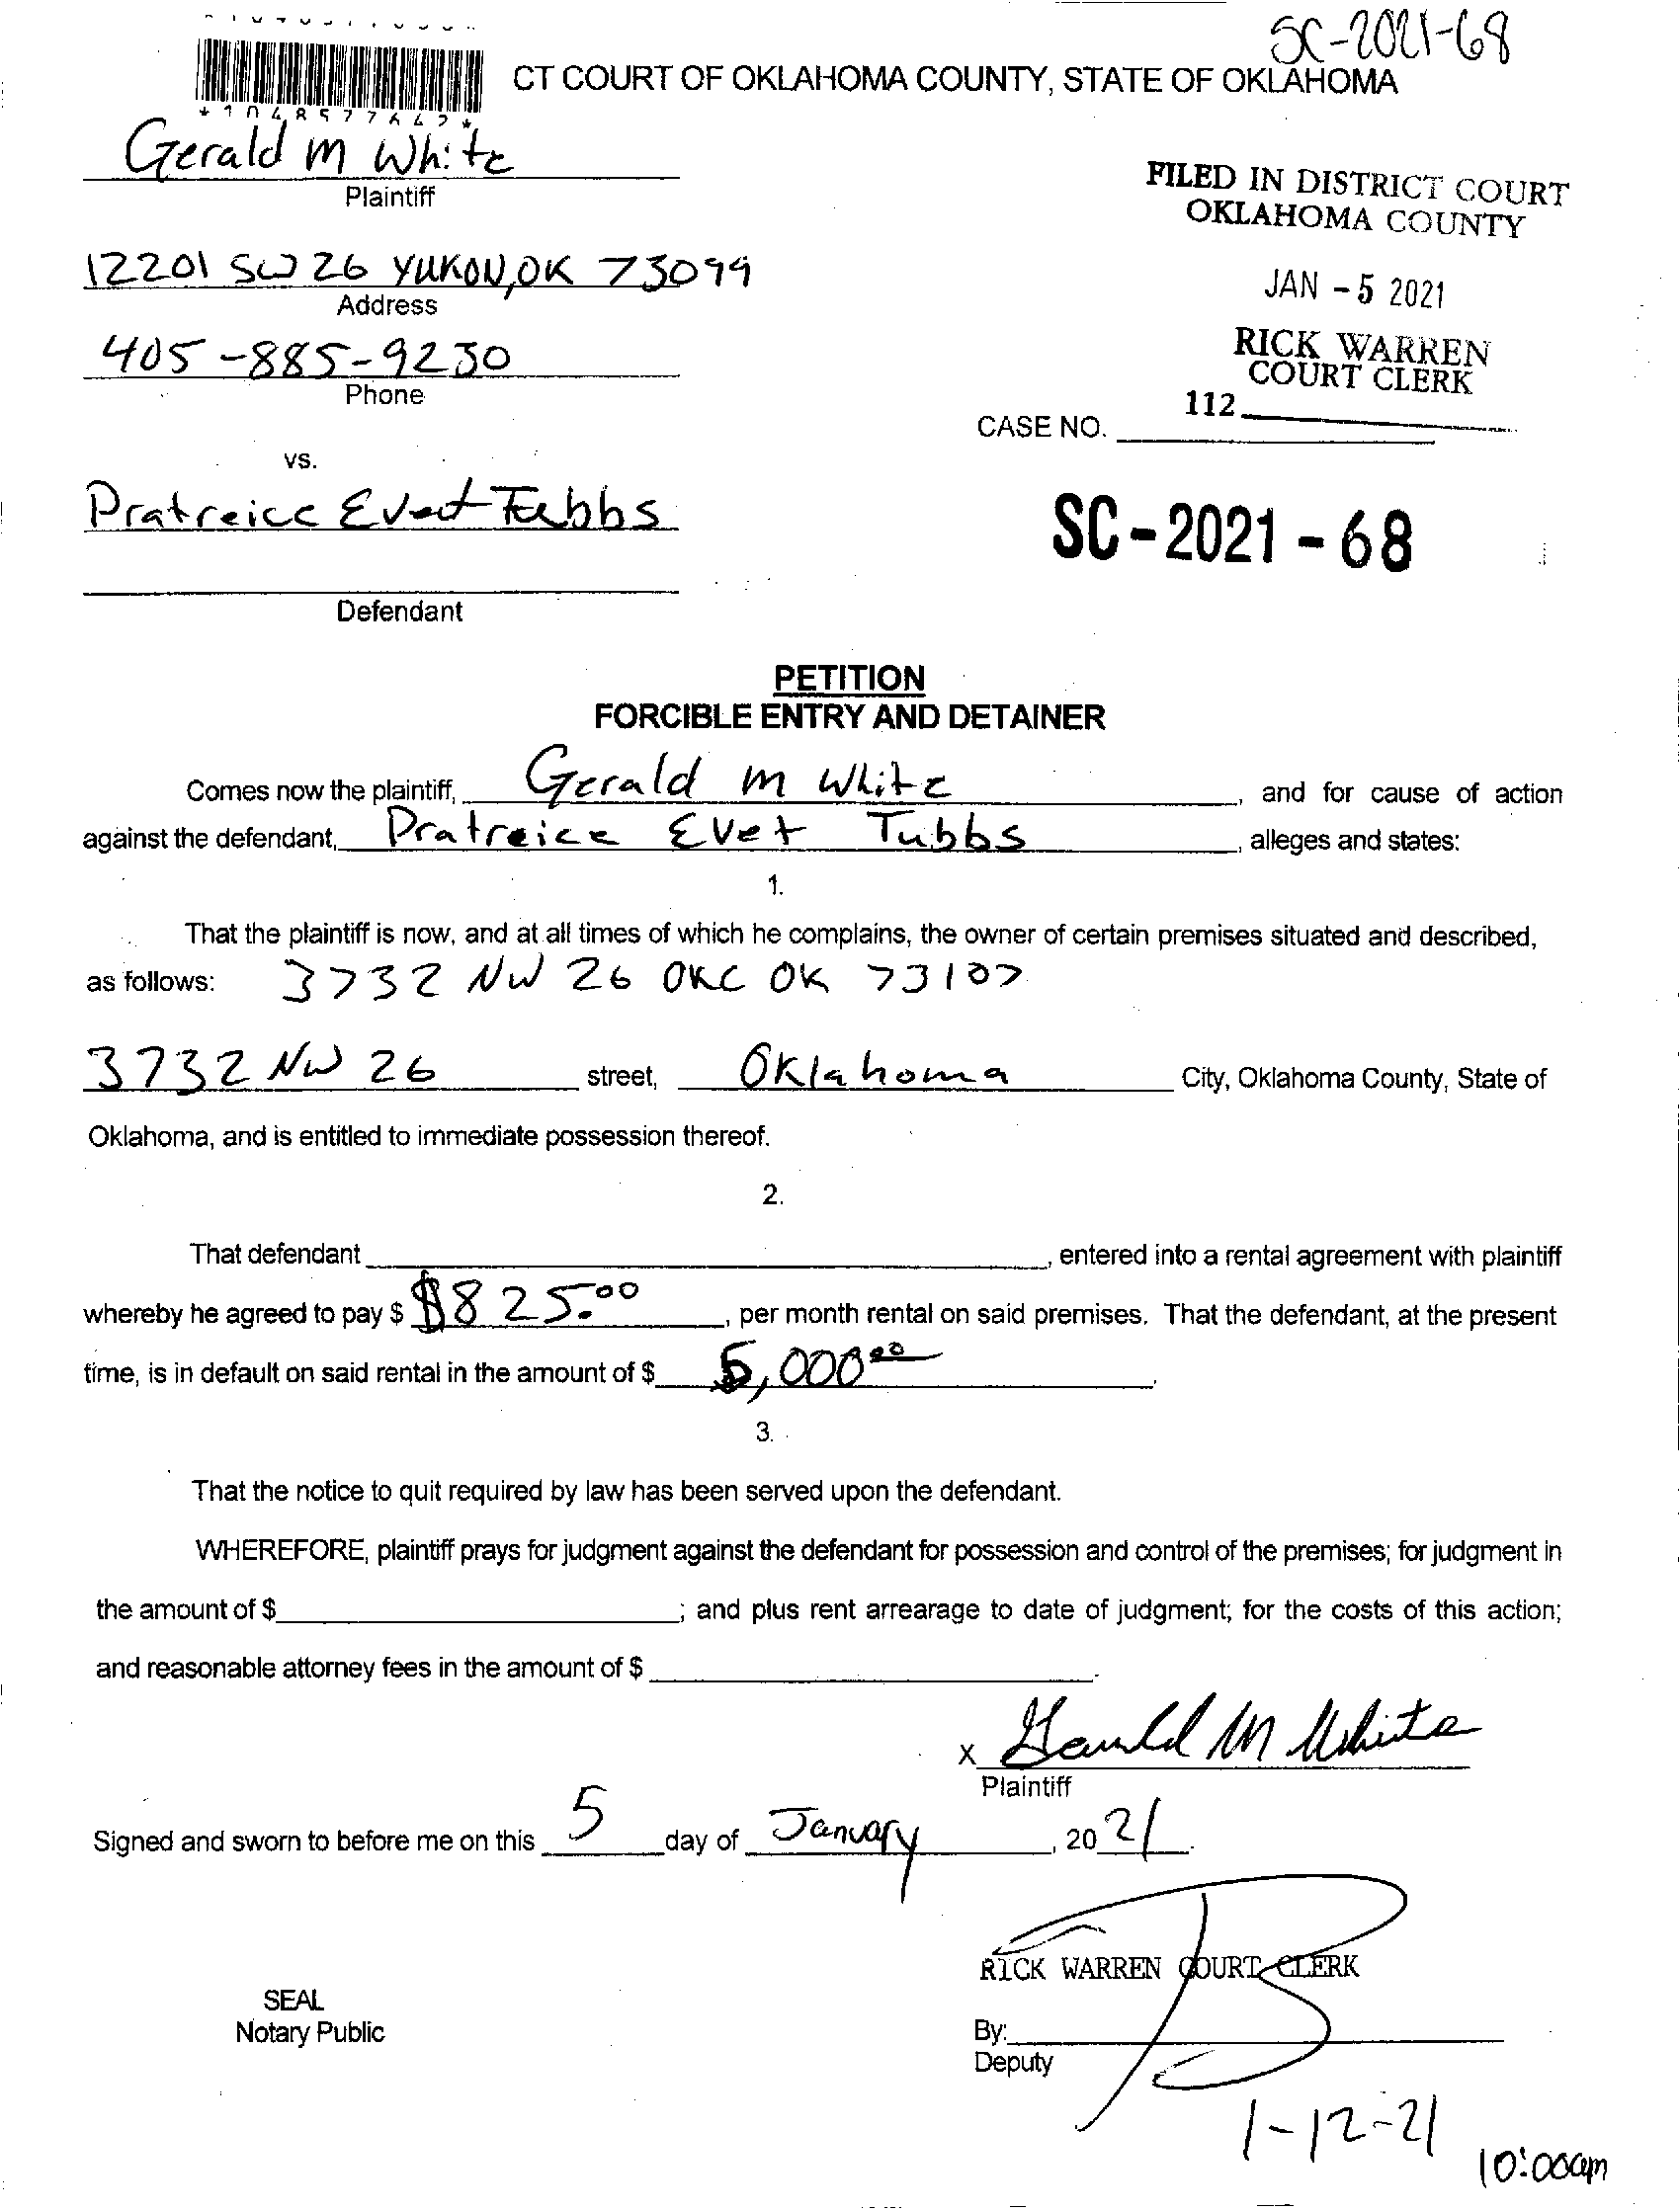 SC-2021-68
CT COURT OF OKLAHOMA COUNTY, STATE OF OKLAHOMA
*1048577642*
Gerald M White
Plaintiff
FILED IN DISTRICT COURT
OKLAHOMA COUNTY
12201 SW 26 YUKON, OK 73099
Address
JAN - 5 2021
405-885-9230
Phone
RICK WARREN
COURT CLERK
112
CASE NO.
vs.
Pratreice Evet Tubbs
SC - 2021 - 68
Defendant
PETITION
FORCIBLE ENTRY AND DETAINER
Comes now the plaintiff, Gerald M White, and for cause of action
against the defendant, Pratreice Evet Tubbs, alleges and states:
1.
That the plaintiff is now, and at all times of which he complains, the owner of certain premises situated and described,
as follows: 3732 NW 26 OKC OK 73107
3732 NW 26 street, Oklahoma City, Oklahoma County, State of
Oklahoma, and is entitled to immediate possession thereof.
2.
That defendant , entered into a rental agreement with plaintiff
whereby he agreed to pay $ $825.00, per month rental on said premises. That the defendant, at the present
time, is in default on said rental in the amount of $ 5,000.00.
3.
That the notice to quit required by law has been served upon the defendant.
WHEREFORE, plaintiff prays for judgment against the defendant for possession and control of the premises; for judgment in
the amount of $ ; and plus rent arrearage to date of judgment; for the costs of this action;
and reasonable attorney fees in the amount of $ .
x Gerald M White
Plaintiff
Signed and sworn to before me on this 5 day of January, 2021.
RICK WARREN COURT CLERK
SEAL
Notary Public
By:
Deputy
1-12-21
10:00am